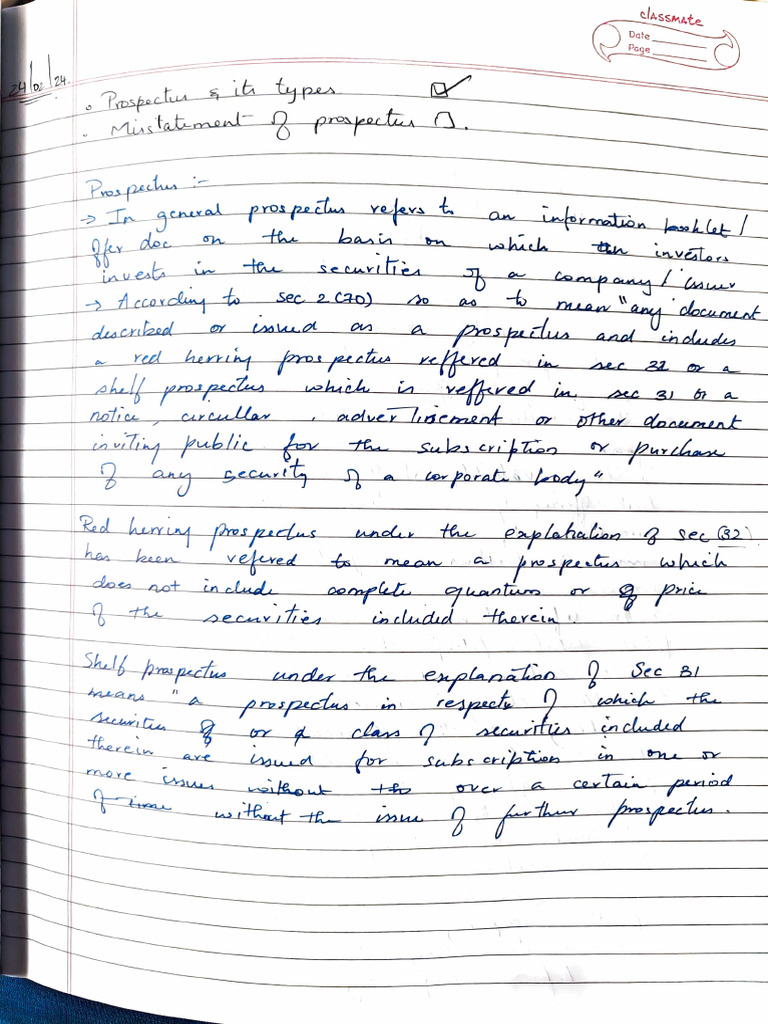 classmate
Date
Page
24/02/24.
• Prospectus & its types
• Misstatement of prospectus
Prospectus :-
→ In general prospectus refers to an information booklet /
offer doc on the basis on which investors
invests in the securities of a company / issuer
→ According to sec 2(70) so as to mean "any document
described or issued as a prospectus and includes
a red herring prospectus reffered in sec 32 or a
shelf prospectus which is reffered in sec 31 or a
notice, circullar, advertisement or other document
inviting public for the subscription or purchase
of any security of a corporate body"
Red herring prospectus under the explanation of sec (32)
has been refered to mean a prospectus which
does not include complete quantum or price
of the securities included therein.
Shelf prospectus under the explanation of Sec 31
means "a prospectus in respect of which the
securities or class of securities included
therein are issued for subscription in one or
more issues without the over a certain period
of time without the issue of further prospectus.